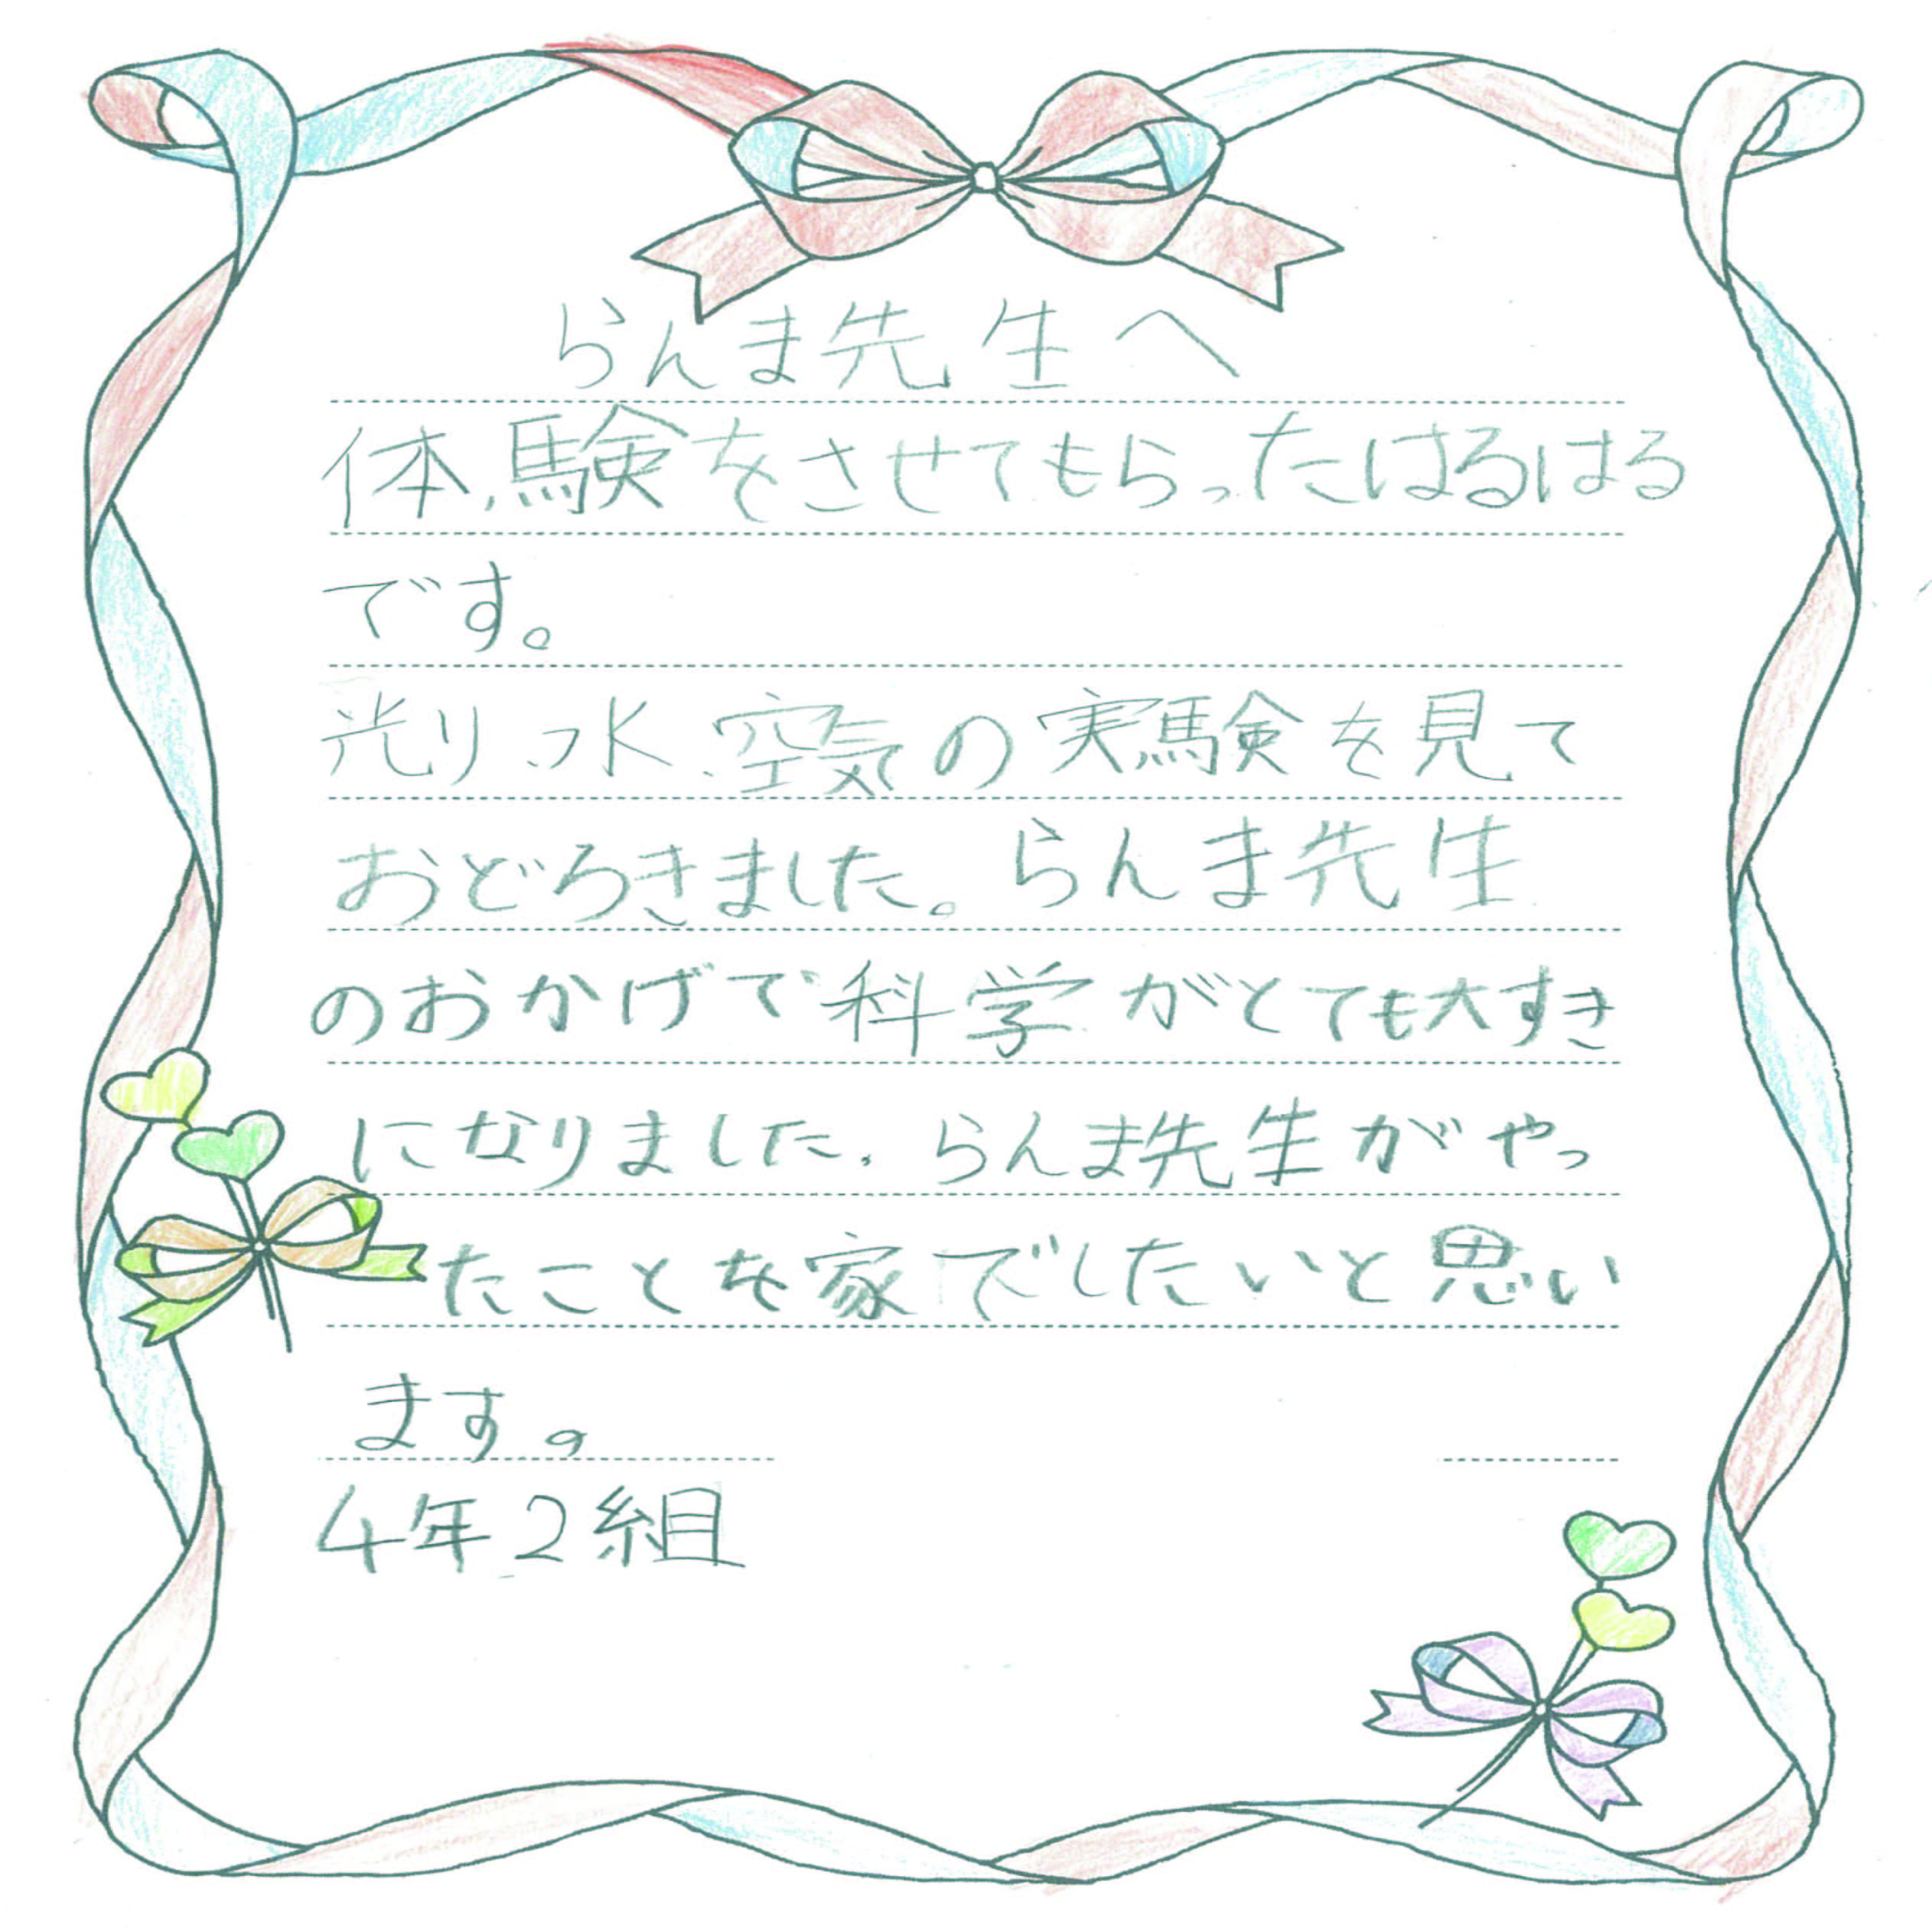 らんま先生へ
体験をさせてもらったはるはる
です。
光り、水、空気の実験を見て
おどろきました。らんま先生
のおかげで科学がとても大すき
になりました。らんま先生がやっ
たことを家でしたいと思い
ます。
4年2組